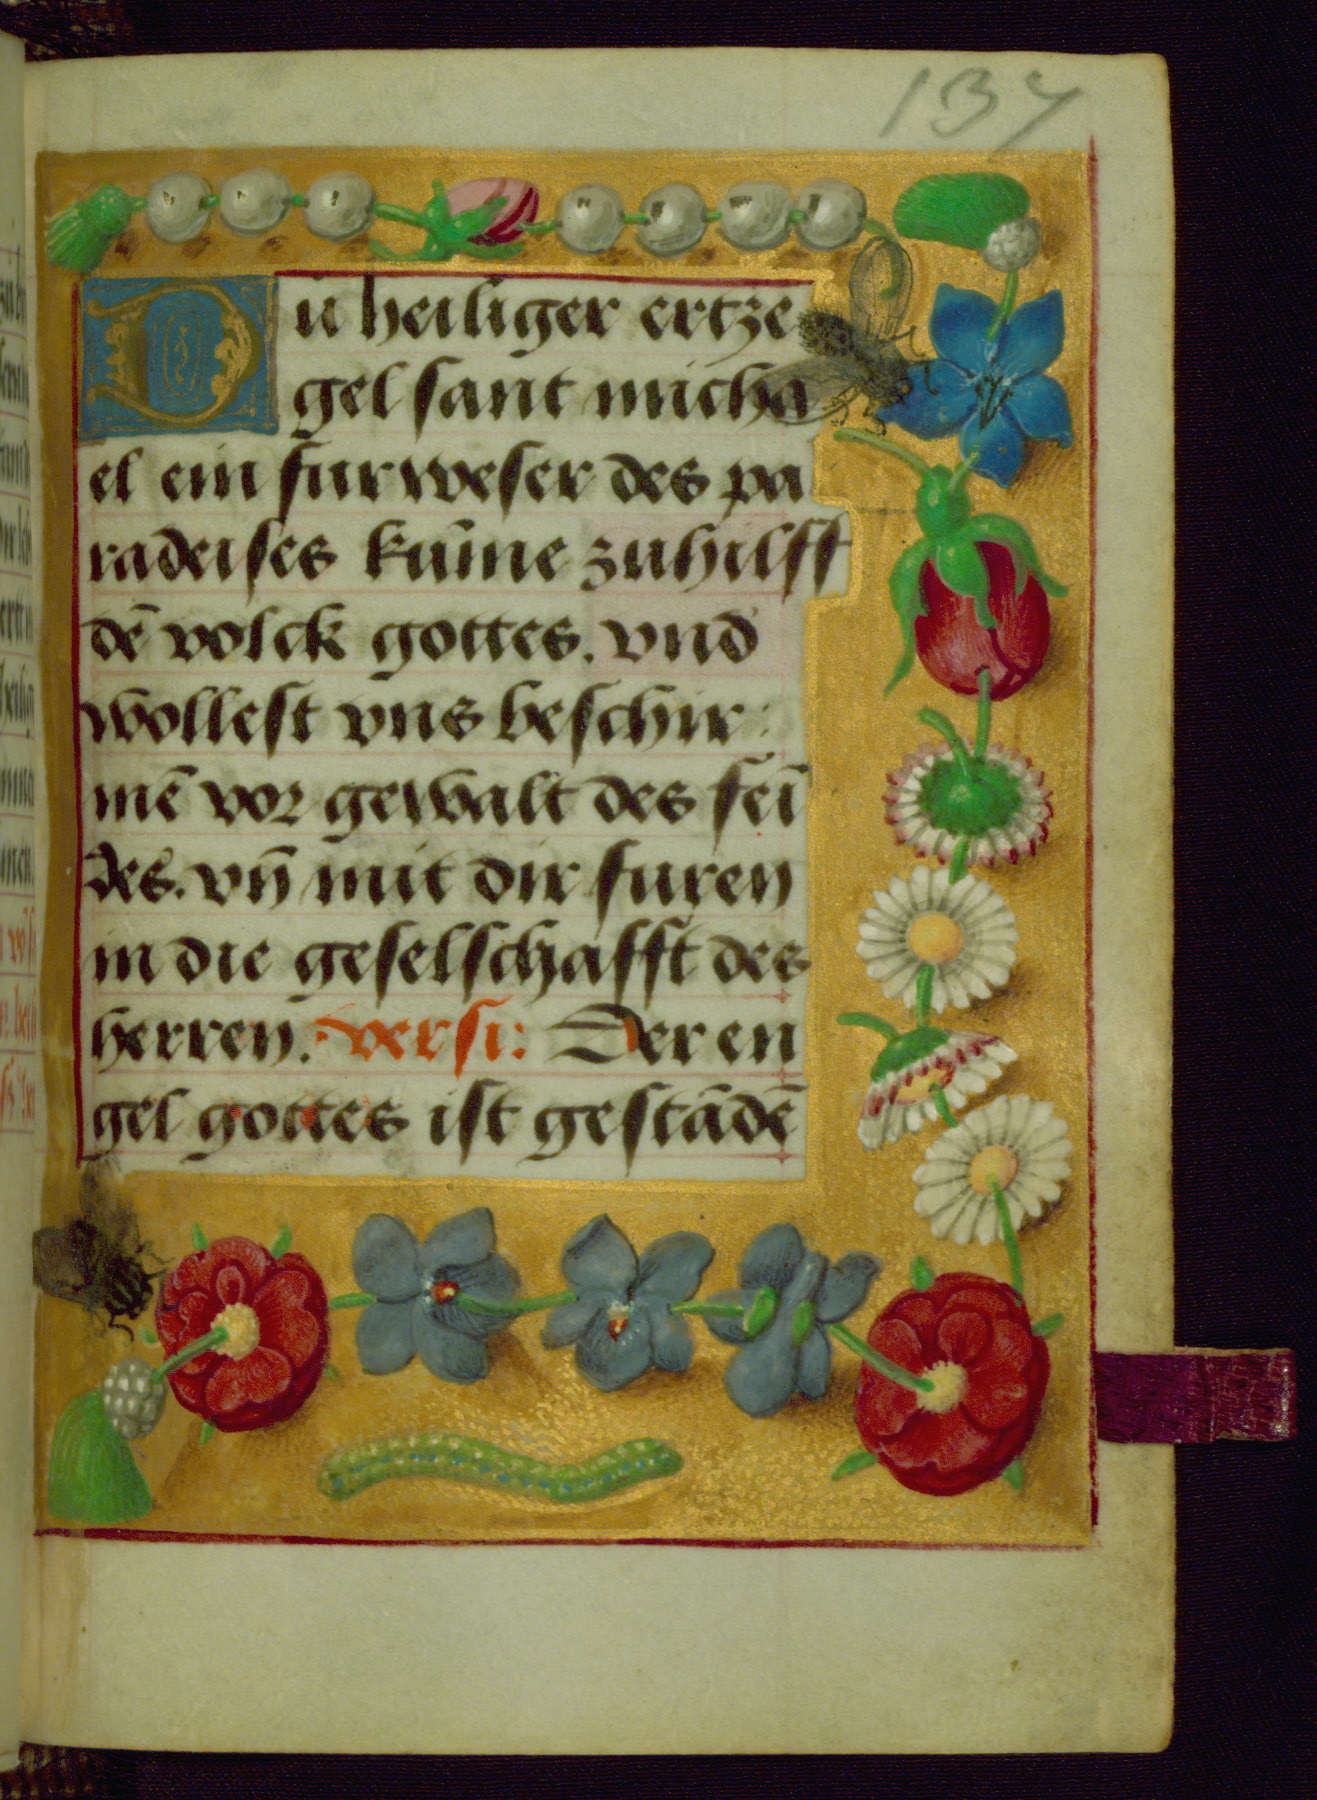 137
Du heiliger ertze
gel sant micha
el ein furweser des pa
radeises kum̄e zuhilfft
dē volck gottes. vnd
wollest vns beschir:
mē vor gewalt des fei
des. vn̄ mit dir furen
in die geselschafft des
herren. versi: Der en
gel gottes ist gestādē